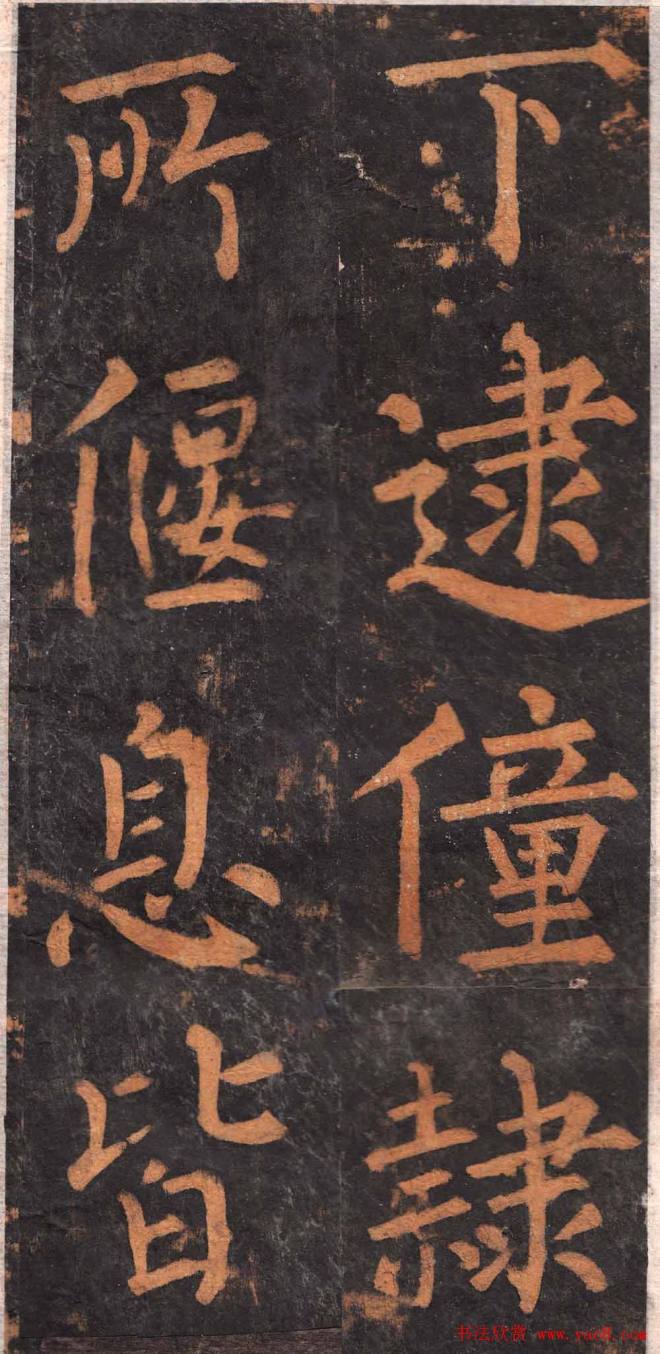 下逮僮隸
所偃息皆
书法欣赏 www.yac8.com